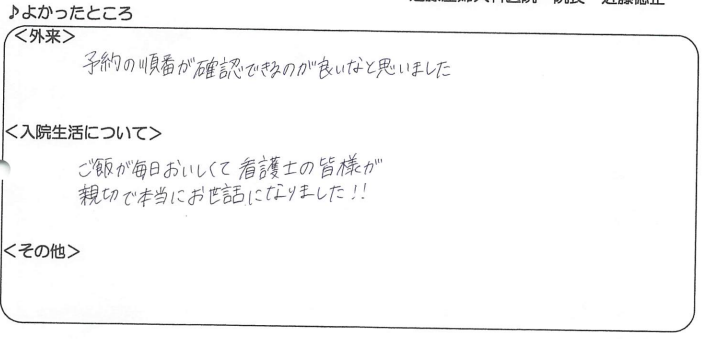 ♪よかったところ
＜外来＞
予約の順番が確認できるのが良いなと思いました
＜入院生活について＞
ご飯が毎日おいしくて看護士の皆様が
親切で本当にお世話になりました!!
＜その他＞